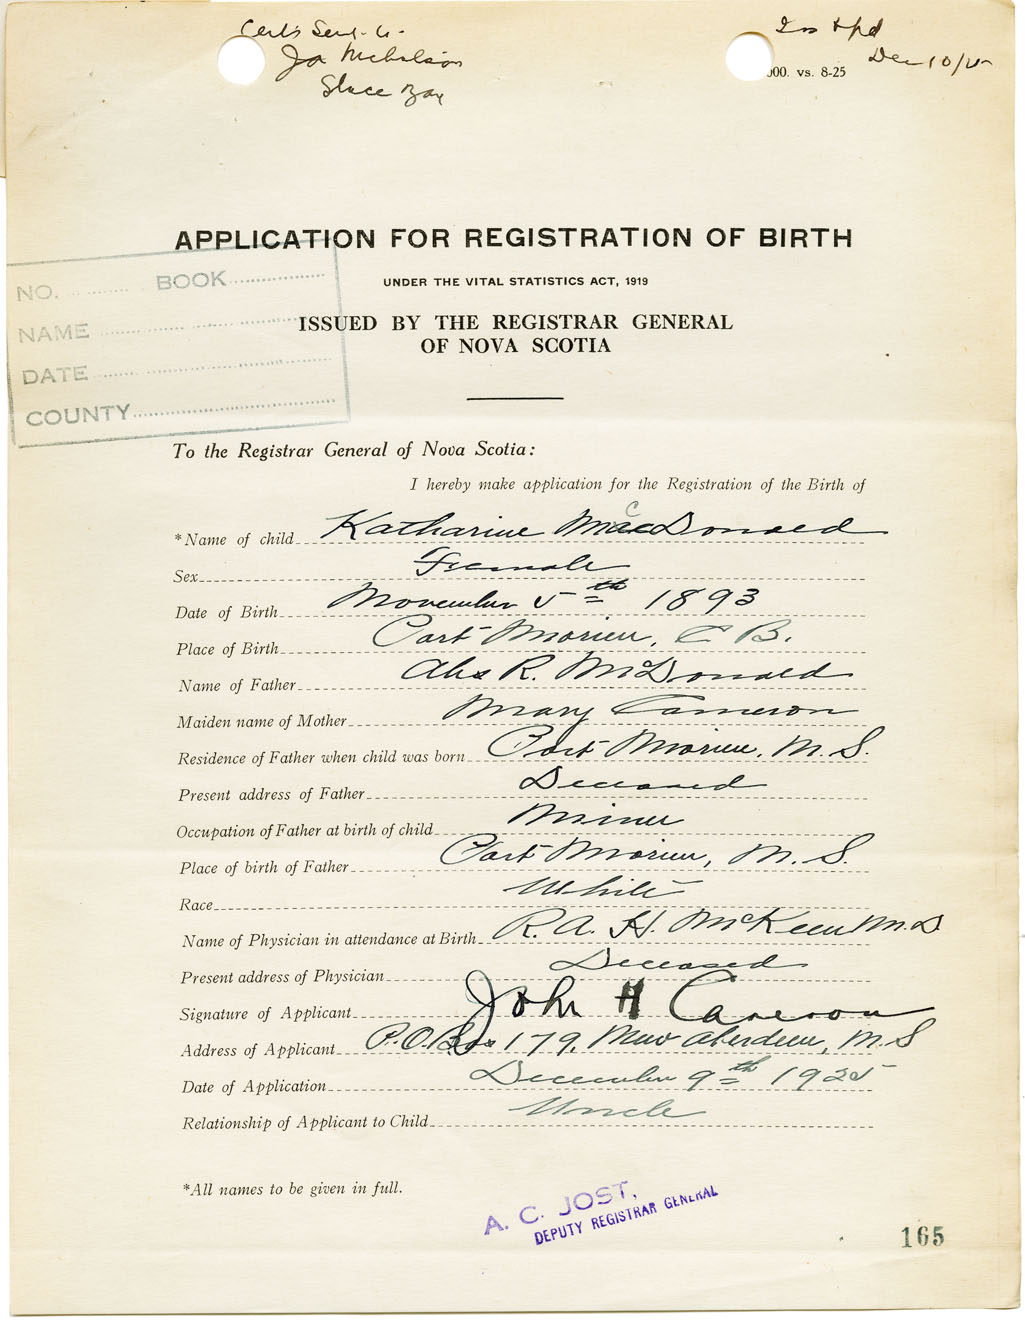 Cert's Sent to
Jos Nicholson
Glace Bay
Ins & pd
Dec 10/25
000. vs. 8-25
APPLICATION FOR REGISTRATION OF BIRTH
UNDER THE VITAL STATISTICS ACT, 1919
ISSUED BY THE REGISTRAR GENERAL
OF NOVA SCOTIA
NO. BOOK
NAME
DATE
COUNTY
To the Registrar General of Nova Scotia:
I hereby make application for the Registration of the Birth of
*Name of child Katharine MacDonald
Sex Female
Date of Birth November 5th 1893
Place of Birth Port Morien, C B.
Name of Father Alex R. McDonald
Maiden name of Mother Mary Cameron
Residence of Father when child was born Port Morien, N. S.
Present address of Father Deceased
Occupation of Father at birth of child Miner
Place of birth of Father Port Morien, N. S.
Race White
Name of Physician in attendance at Birth R. A. H. McKeen M.D
Present address of Physician Deceased
Signature of Applicant John H Cameron
Address of Applicant P.O. Box 179, New Aberdeen, N. S
Date of Application December 9th 1925
Relationship of Applicant to Child Uncle
*All names to be given in full.
A. C. JOST,
DEPUTY REGISTRAR GENERAL
165